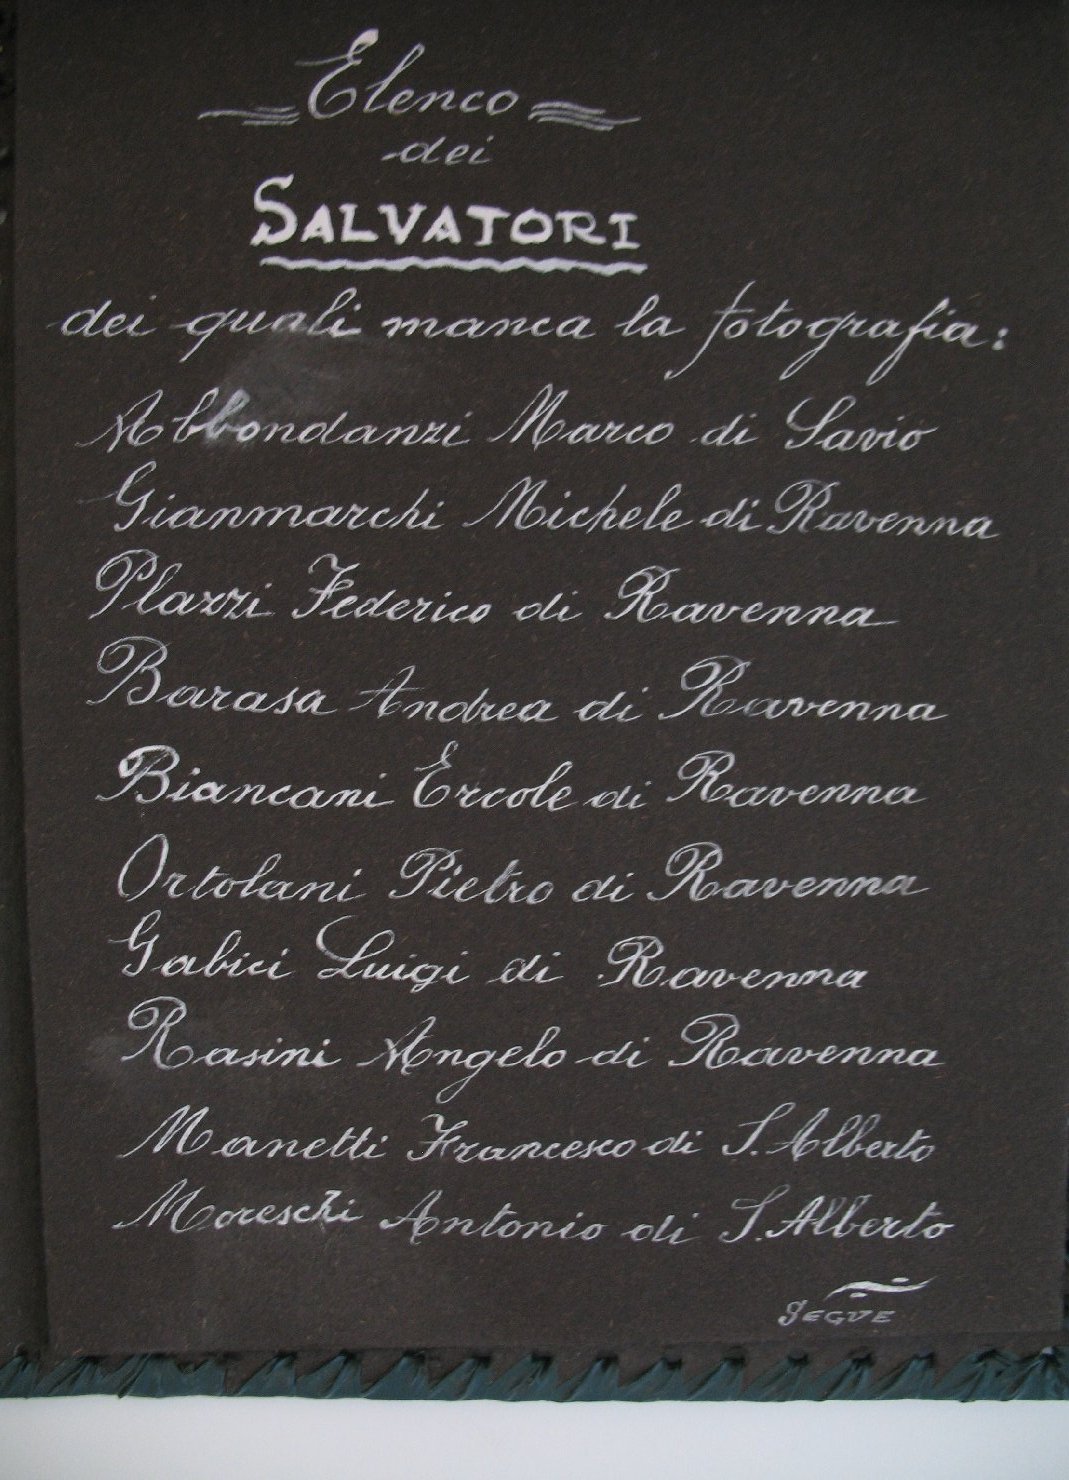 Elenco
dei
SALVATORI
dei quali manca la fotografia:
Abbondanzi Marco di Savio
Gianmarchi Michele di Ravenna
Plazzi Federico di Ravenna
Barasa Andrea di Ravenna
Biancani Ercole di Ravenna
Ortolani Pietro di Ravenna
Gabici Luigi di Ravenna
Rasini Angelo di Ravenna
Manetti Francesco di S. Alberto
Moreschi Antonio di S. Alberto
SEGUE